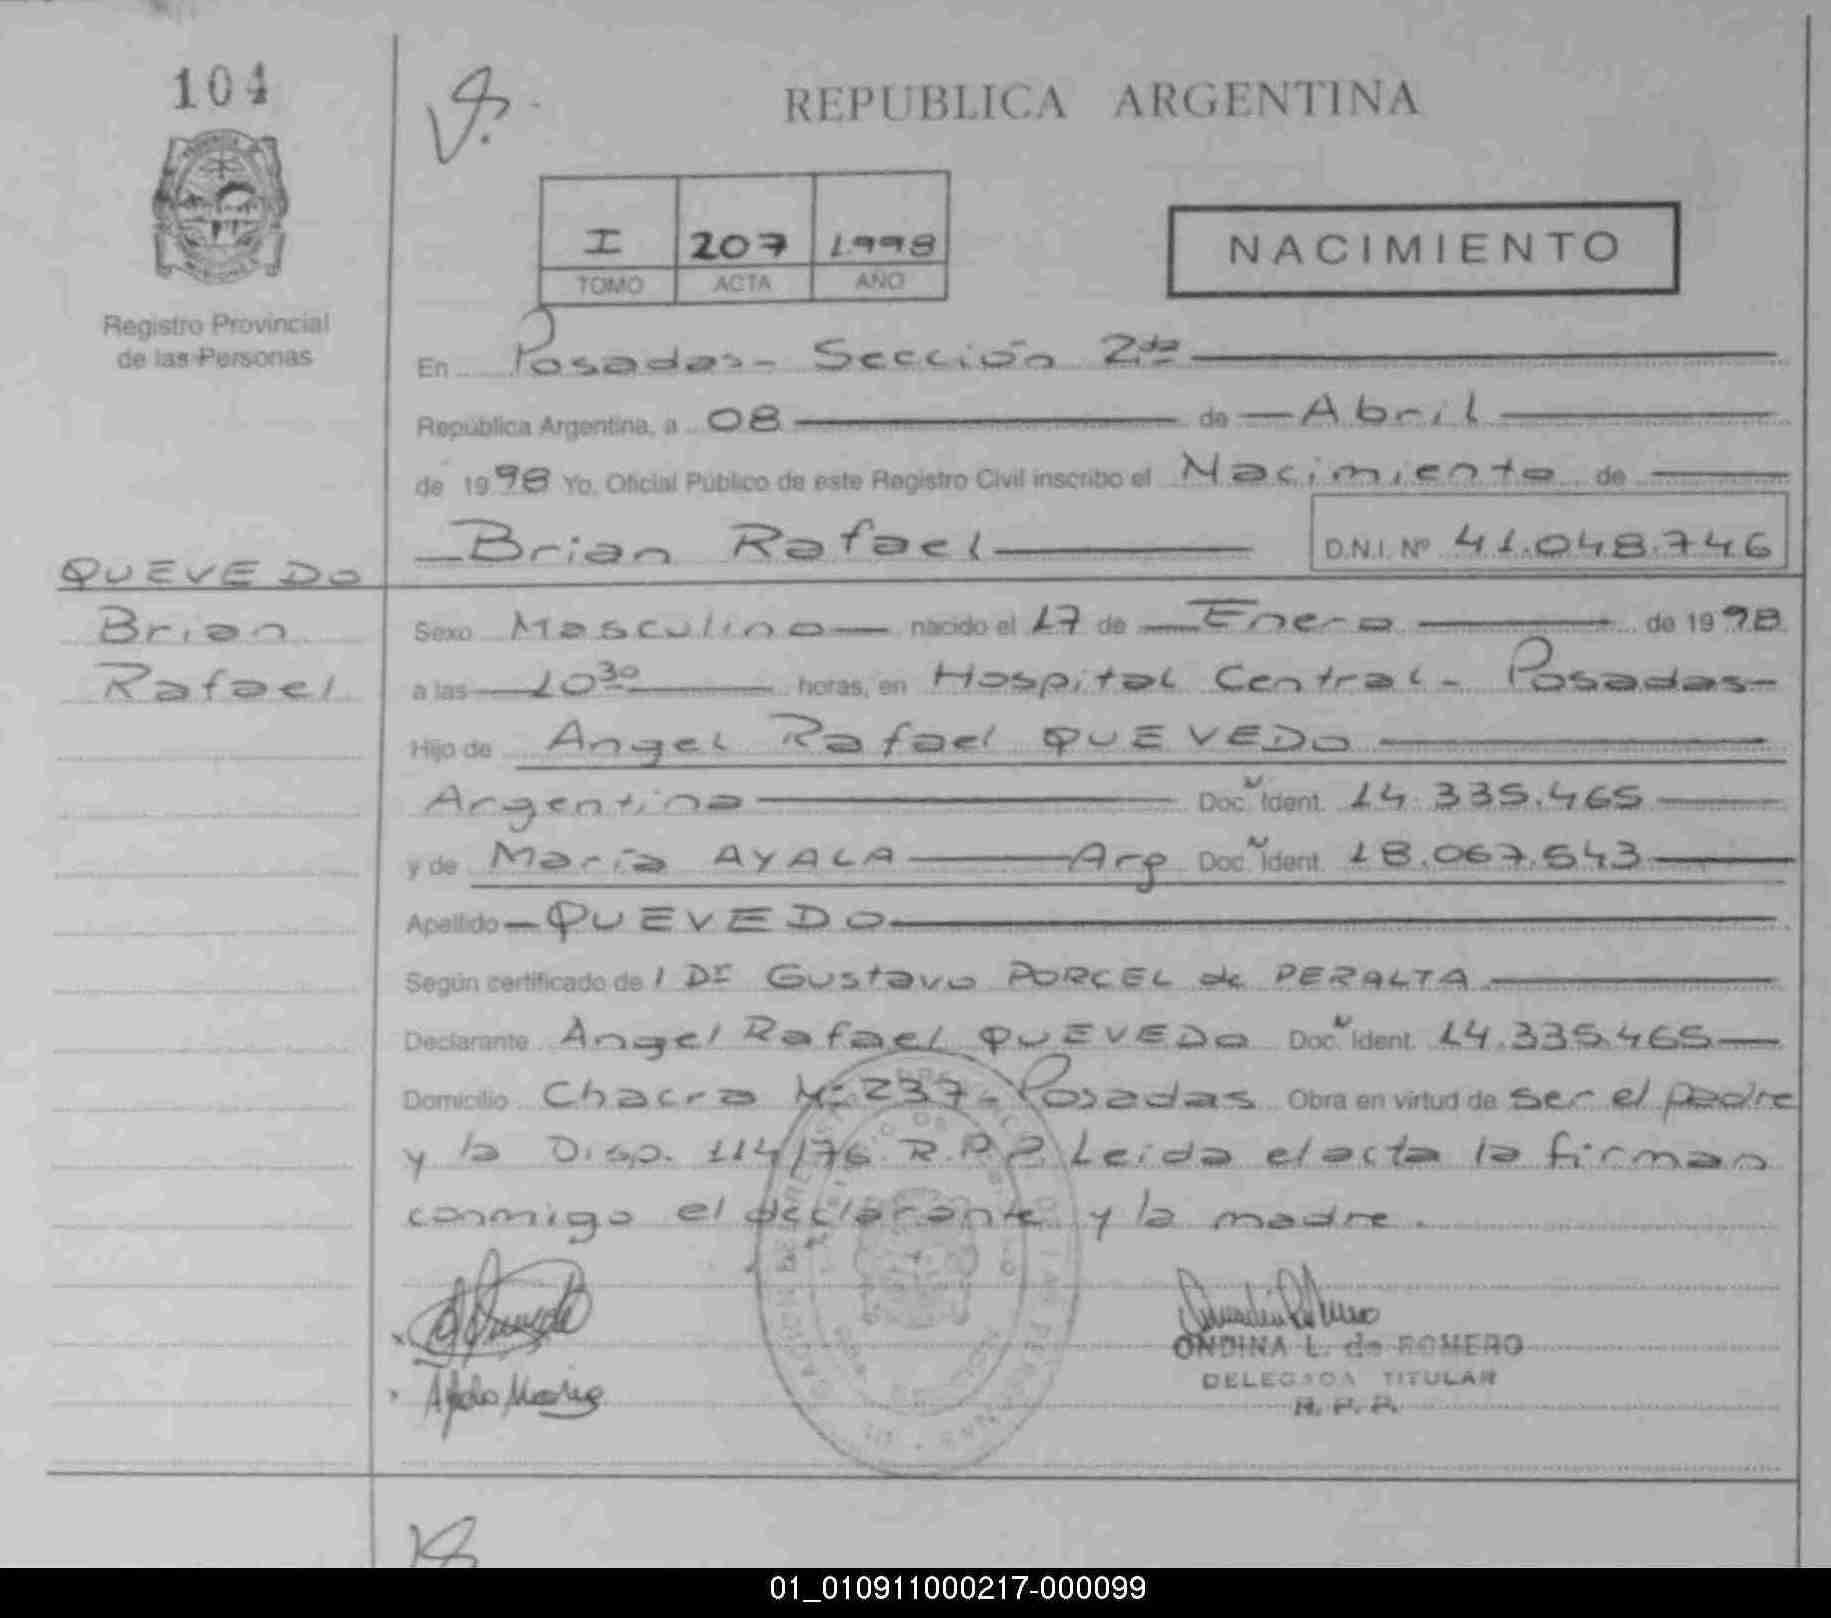 104
REPUBLICA ARGENTINA
I 207 1998
TOMO ACTA AÑO
NACIMIENTO
Registro Provincial
de las Personas
En Posadas- Sección 2da
República Argentina, a 08 de Abril
de 1998 Yo, Oficial Público de este Registro Civil inscribo el Nacimiento de
Brian Rafael D.N.I. Nº 41.048.746
QUEVEDO
Brian
Rafael
Sexo Masculino nacido el 17 de Enero de 1998
a las 10 30 horas, en Hospital Central - Posadas-
Hijo de Angel Rafael QUEVEDO
Argentina Doc. Ident. 14.335.465
y de María AYALA Arg Doc. Ident. 18.067.543
Apellido QUEVEDO
Según certificado de l Dr Gustavo PORCEL de PERALTA
Declarante Angel Rafael QUEVEDO Doc. Ident. 14.335.465
Domicilio Chacra Nº 237- Posadas Obra en virtud de ser el padre
y la Disp. 114/76 R.P.P. Leida el acta la firman
conmigo el declarante y la madre.
Ayala María
ONDINA L. de ROMERO
DELEGADA TITULAR
R. P. P.
01_010911000217-000099